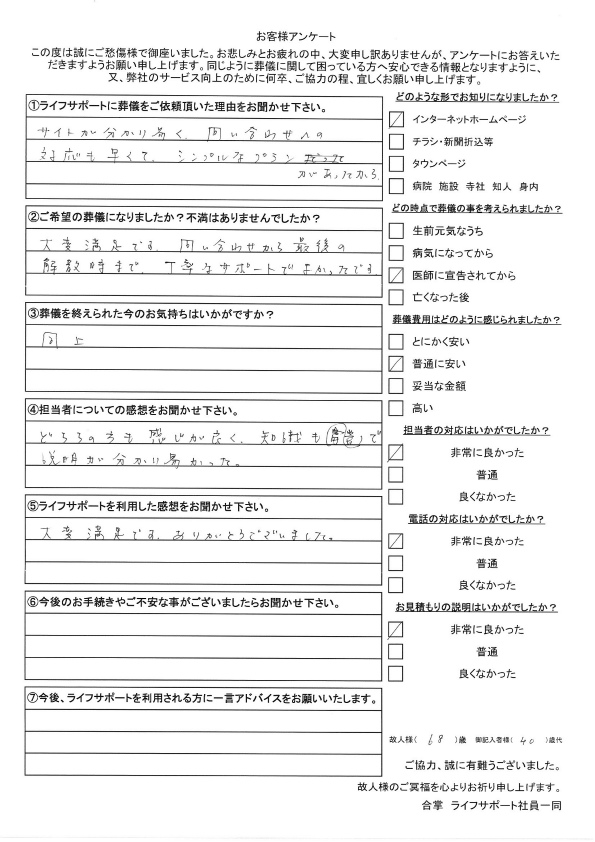 お客様アンケート
この度は誠にご愁傷様で御座いました。お悲しみとお疲れの中、大変申し訳ありませんが、アンケートにお答えいた
だきますようお願い申し上げます。同じように葬儀に関して困っている方へ安心できる情報となりますように、
又、弊社のサービス向上のために何卒、ご協力の程、宜しくお願い申し上げます。
①ライフサポートに葬儀をご依頼頂いた理由をお聞かせ下さい。
サイトが分かり易く、問い合わせへの
対応も早くて、シンプルなプラン
があってから
②ご希望の葬儀になりましたか？不満はありませんでしたか？
大変満足です。問い合わせから最後の
解散時まで、丁寧なサポートでよかったです
③葬儀を終えられた今のお気持ちはいかがですか？
同上
④担当者についての感想をお聞かせ下さい。
どちらの方も感じが良く、知識も豊富で
説明が分かり易かった。
⑤ライフサポートを利用した感想をお聞かせ下さい。
大変満足です。ありがとうございました。
⑥今後のお手続きやご不安な事がございましたらお聞かせ下さい。
⑦今後、ライフサポートを利用される方に一言アドバイスをお願いいたします。
どのような形でお知りになりましたか？
インターネットホームページ
チラシ・新聞折込等
タウンページ
病院 施設 寺社 知人 身内
どの時点で葬儀の事を考えられましたか？
生前元気なうち
病気になってから
医師に宣告されてから
亡くなった後
葬儀費用はどのように感じられましたか？
とにかく安い
普通に安い
妥当な金額
高い
担当者の対応はいかがでしたか？
非常に良かった
普通
良くなかった
電話の対応はいかがでしたか？
非常に良かった
普通
良くなかった
お見積もりの説明はいかがでしたか？
非常に良かった
普通
良くなかった
故人様( 68 )歳 御記入者様( 40 )歳代
ご協力、誠に有難うございました。
故人様のご冥福を心よりお祈り申し上げます。
合掌 ライフサポート社員一同